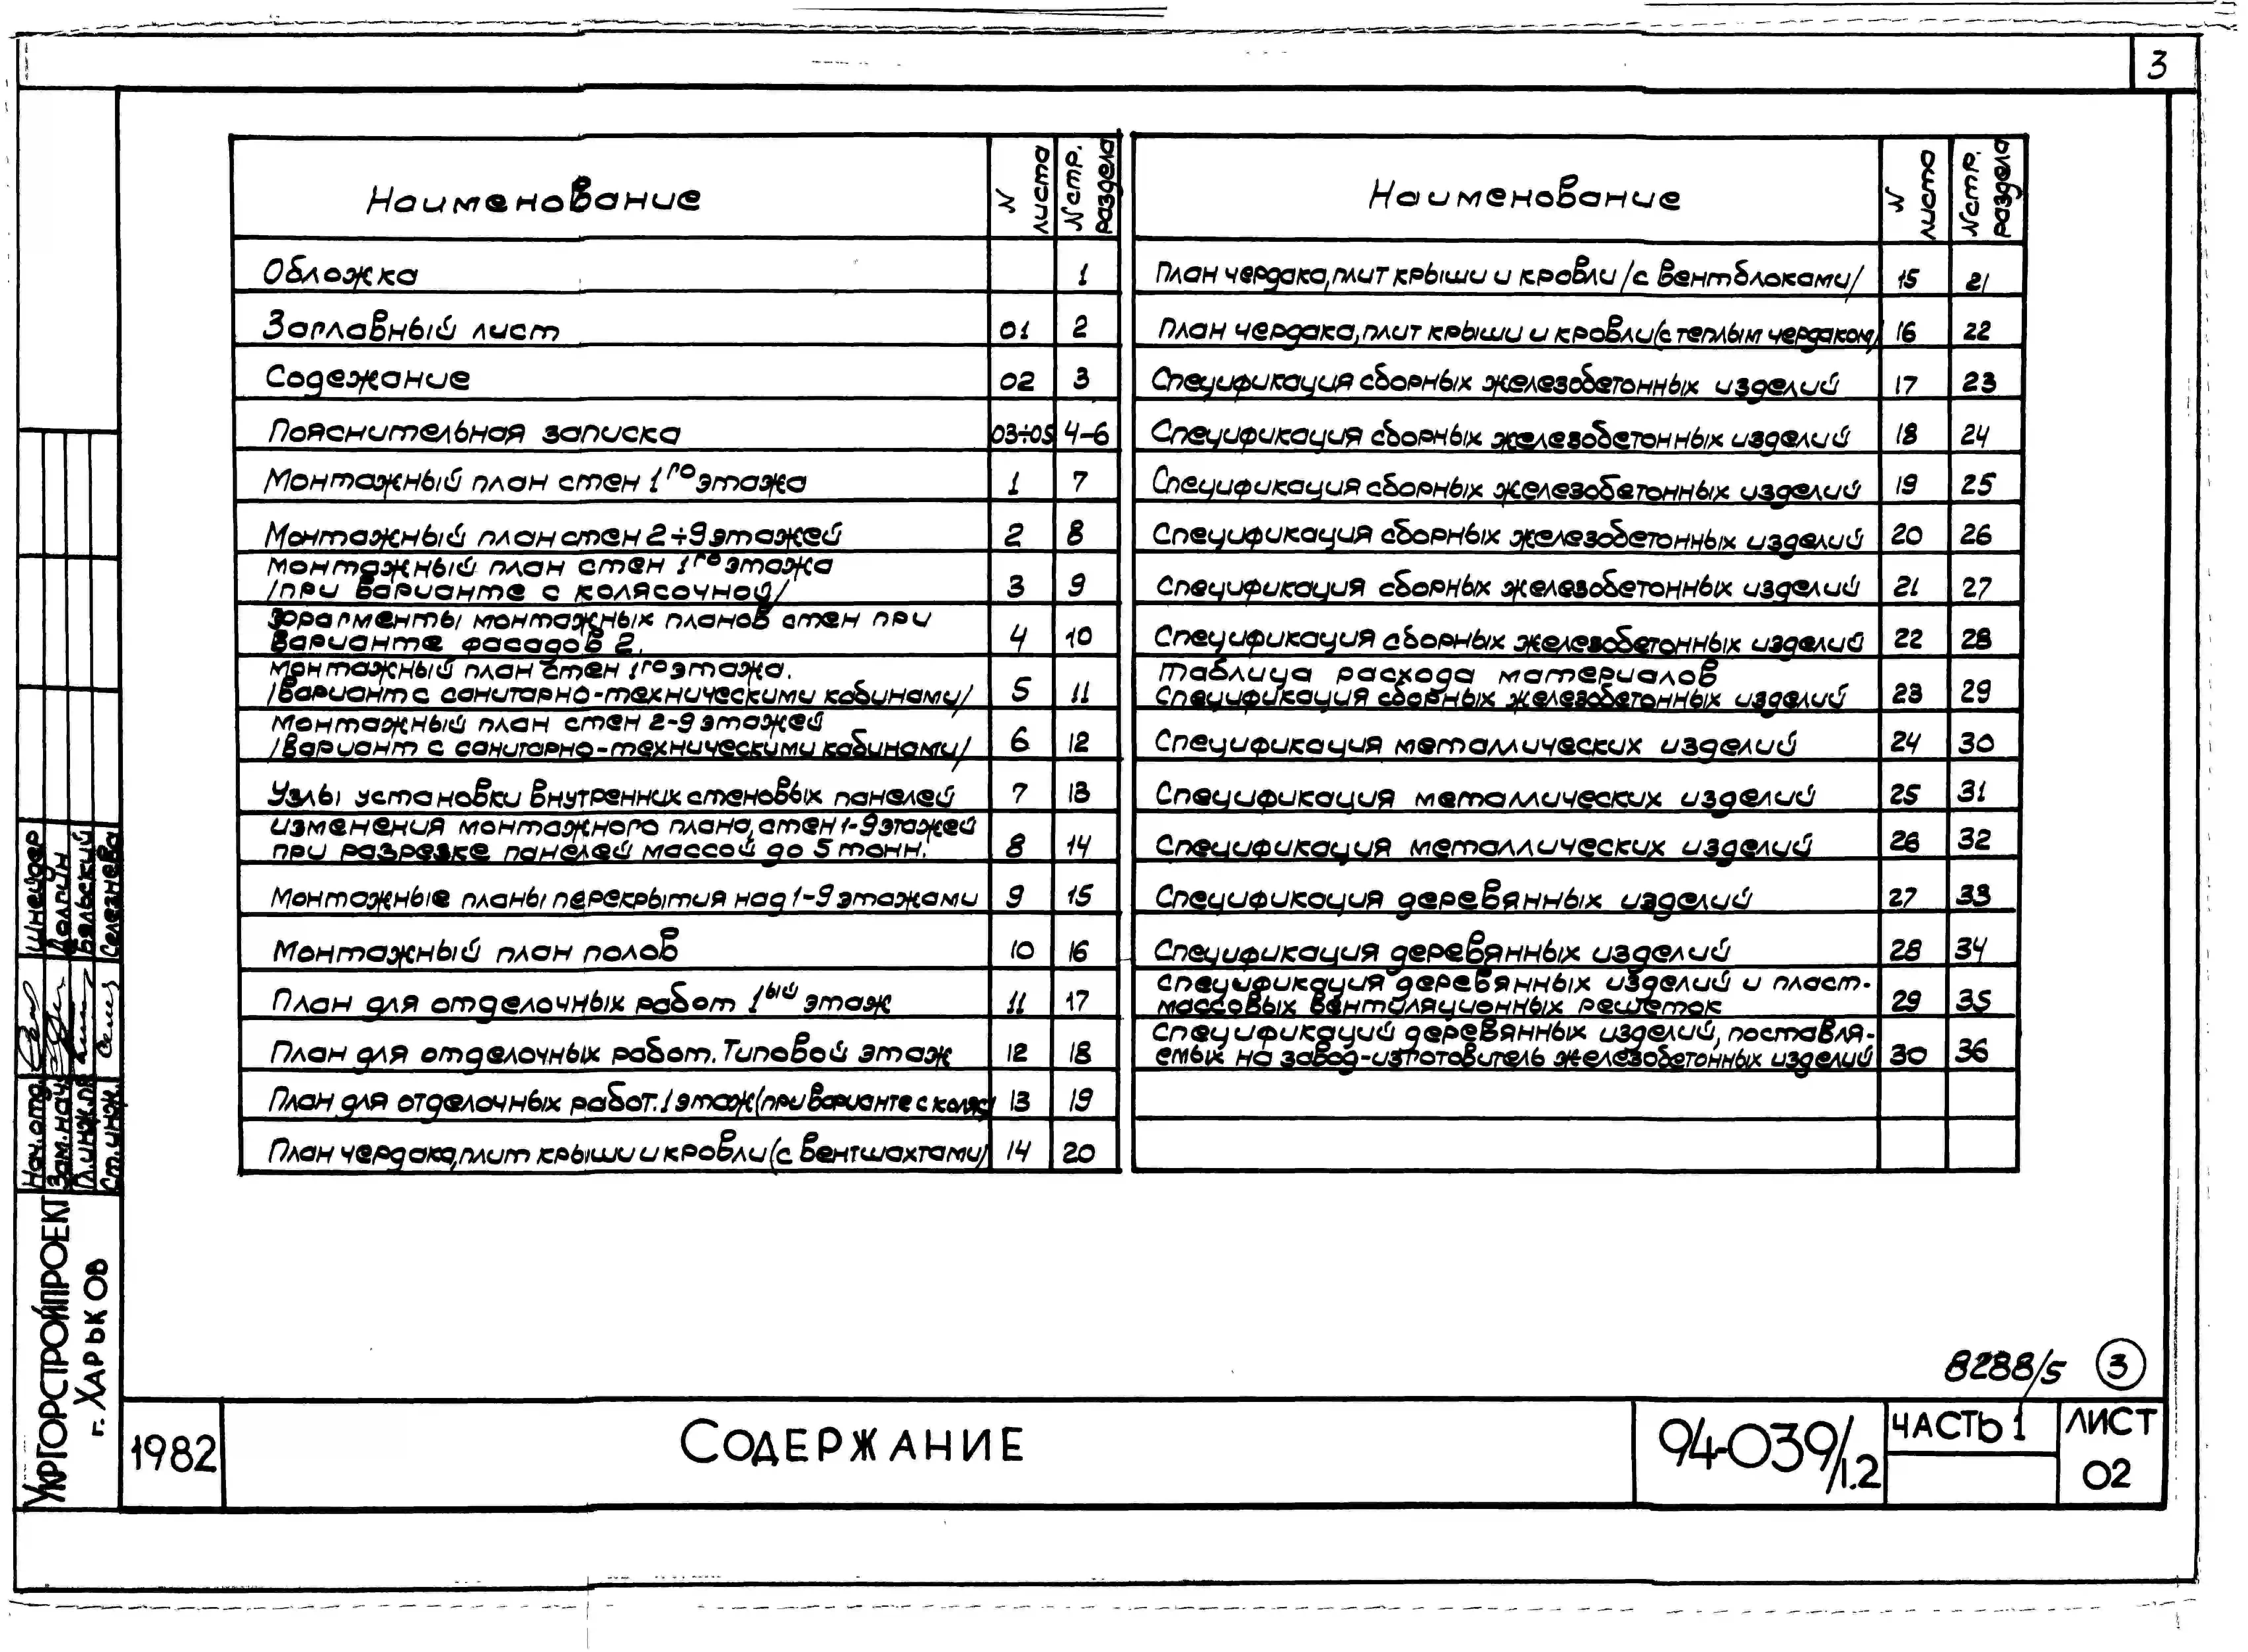 3
Наименование
N листа
N стр. раздела
Обложка 1
Заглавный лист 01 2
Содежание 02 3
Пояснительная записка 03÷05 4-6
Монтажный план стен 1го этажа 1 7
Монтажный план стен 2÷9 этажей 2 8
Монтажный план стен 1го этажа
/при варианте с колясочной/ 3 9
Фрагменты монтажных планов стен при
варианте фасадов 2. 4 10
Монтажный план стен 1го этажа.
/Вариант с санитарно-техническими кабинами/ 5 11
Монтажный план стен 2-9 этажей
/Вариант с санитарно-техническими кабинами/ 6 12
Узлы установки внутренних стеновых панелей 7 13
Изменения монтажного плана, стен 1-9 этажей
при разрезке панелей массой до 5 тонн. 8 14
Монтажные планы перекрытия над 1-9 этажами 9 15
Монтажный план полов 10 16
План для отделочных работ 1ый этаж 11 17
План для отделочных работ. Типовой этаж 12 18
План для отделочных работ. 1 этаж (при варианте с коляс) 13 19
План чердака, плит крыши и кровли (с вентшахтами) 14 20
Наименование
N листа
N стр. раздела
План чердака, плит крыши и кровли /с вентблоками/ 15 21
План чердака, плит крыши и кровли (с теплым чердаком) 16 22
Спецификация сборных железобетонных изделий 17 23
Спецификация сборных железобетонных изделий 18 24
Спецификация сборных железобетонных изделий 19 25
Спецификация сборных железобетонных изделий 20 26
Спецификация сборных железобетонных изделий 21 27
Спецификация сборных железобетонных изделий 22 28
Таблица расхода материалов
Спецификация сборных железобетонных изделий 23 29
Спецификация металлических изделий 24 30
Спецификация металлических изделий 25 31
Спецификация металлических изделий 26 32
Спецификация деревянных изделий 27 33
Спецификация деревянных изделий 28 34
Спецификация деревянных изделий и пласт-
массовых вентиляционных решеток 29 35
Спецификаций деревянных изделий, поставля-
емых на завод-изготовитель железобетонных изделий 30 36
Нач. отд. Шнейдер
Зам. нач. Долгин
Гл. инж. пр. Бельский
Ст. инж. Селезнева
УКРГОРСТРОЙПРОЕКТ
г. ХАРЬКОВ
8288/5 3
1982
СОДЕРЖАНИЕ
94-039/1.2
ЧАСТЬ 1
ЛИСТ
02